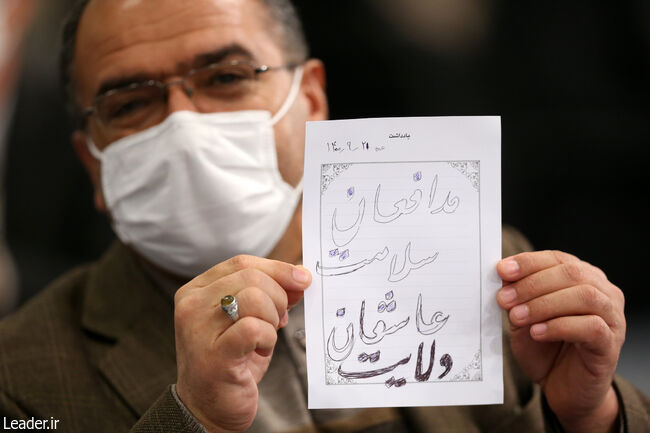 یادداشت
۱۴۰۰_۹_۲۱
مدافعان
سلامت
عاشقان
ولایت
Leader.ir